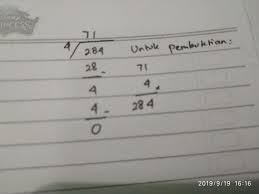 71
4 / 284 Untuk pembuktian:
28 - 71
4 4 ×
4 - 284
0
2019/9/19 16:16